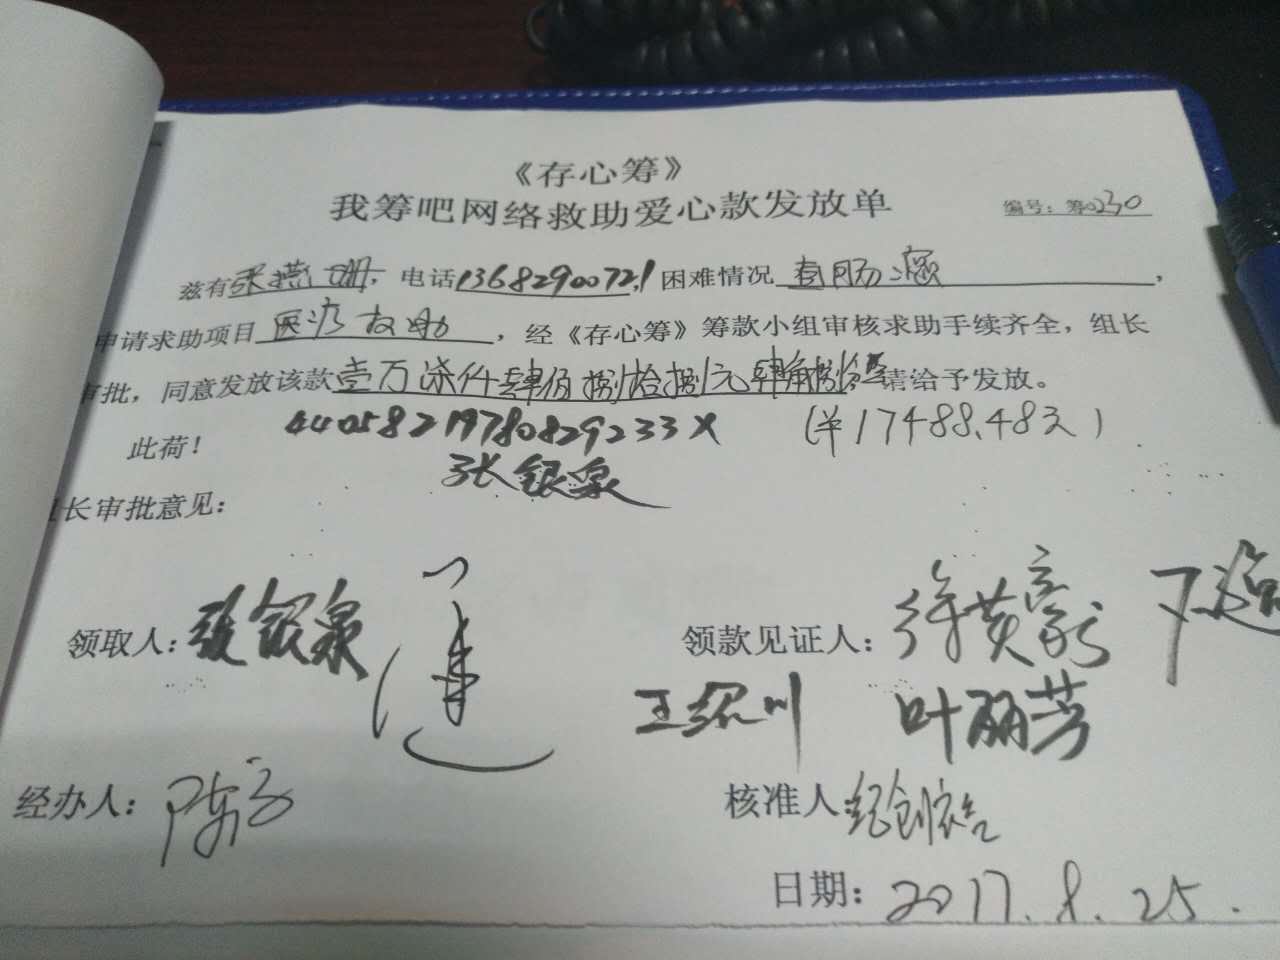 《存心筹》
我筹吧网络救助爱心款发放单
编号：筹0230
兹有张燕珊，电话13682900721困难情况 直肠癌 ，
申请求助项目医疗救助，经《存心筹》筹款小组审核求助手续齐全，组长
审批，同意发放该款壹万柒仟肆佰捌拾捌元肆角捌分 请给予发放。
此荷！ 44058219780829233X （¥17488.48元）
张银泉
组长审批意见：
领取人：张银泉 领款见证人：徐黄豪
王绍川 叶丽芳
经办人：陈 核准人：
日期：2017.8.25.